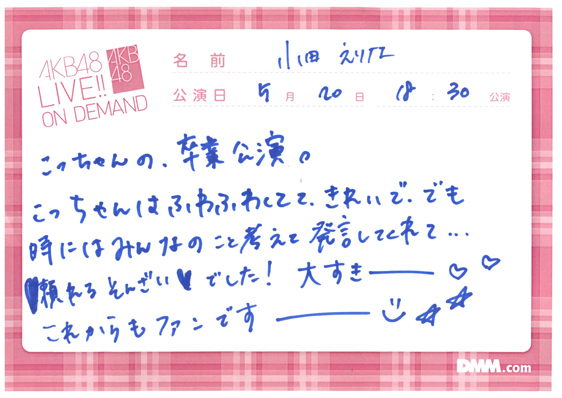 AKB48
LIVE!!
ON DEMAND
AKB
48
名前 小田えりな
公演日 5月20日 18:30公演
こっちゃんの、卒業公演。
こっちゃんはふわふわしてて、きれいで、でも
時にはみんなのこと考えて発言してくれて...
♥頼れるそんざい♥でした! 大すきーー♡♡
これからもファンですーー☺☆☆
DMM.com